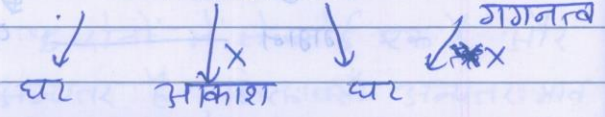 गगनत्व
x x
घट आकाश घट